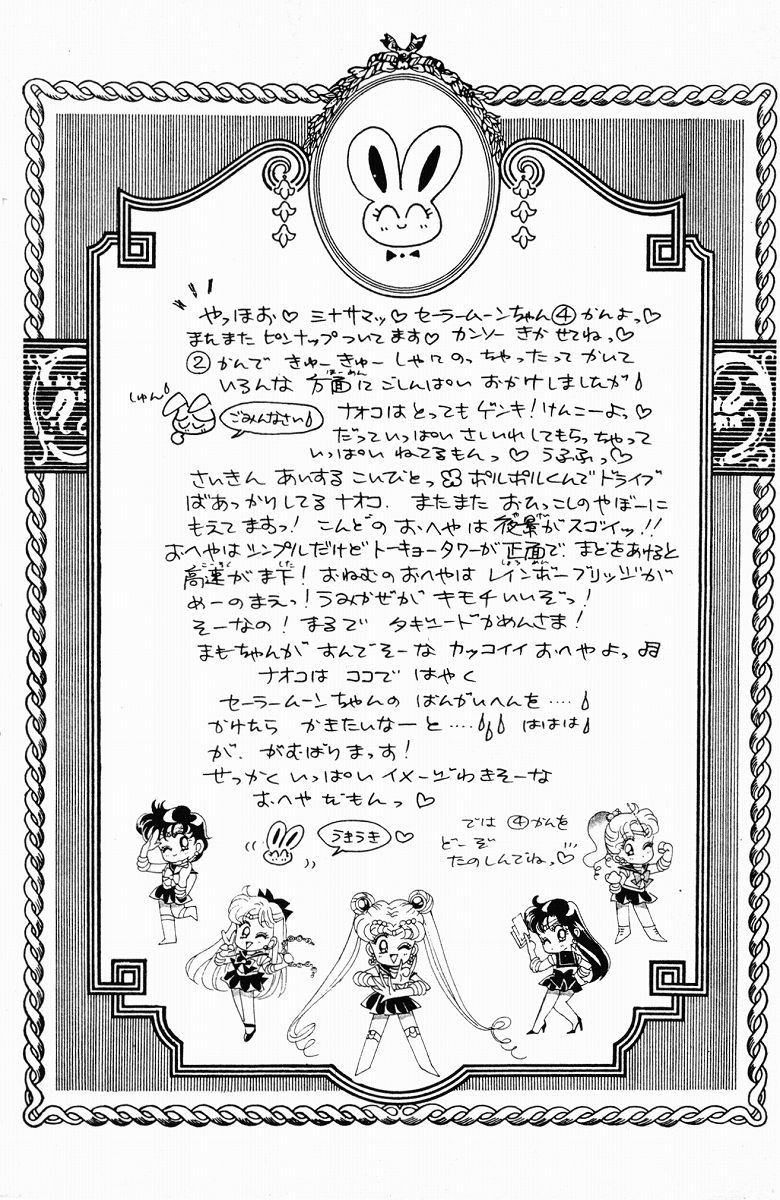 やっほお♡ ミナサマッ♡ セーラームーンちゃん④かんよっ♡
またまた ピンナップついてます♡ カンソー きかせてねっ♡
②かんで きゅーきゅーしゃにのっちゃったって かいて
いろんな 方面に ごしんぱい おかけしましたが
ほーめん
しゅん
ごみんなさい
ナオコは とっても ゲンキ! けんこーよっ♡
だって いっぱい さしいれ してもらっちゃって
いっぱい ねてるもんっ♡ うふふっ♡
さいきん あいする こいびとっ ポルポルくんで ドライブ
ばあっかりしてる ナオコ. またまた おひっこしの やぼーに
もえてますっ! こんどの おへやは 夜景が スゴイッ!!
おへやは シンプルだけど トーキョータワーが 正面で まどをあけると
こうそく ました しょうめん
高速が 真下! おねむの おへやは レインボーブリッジが
めーのまえっ! うみかぜが キモチいいぞっ!
そーなの! まるで タキシードかめんさま!
まもちゃんが すんでそーな カッコイイ おへやよっ♫
ナオコは ココで はやく
セーラームーンちゃんの ばんがいへんを‥‥
かけたら かきたいなーと‥‥ ははは
が、がむばりまっす!
せっかく いっぱい イメージわきそーな
おへや だもんっ♡
うきうき♡
では ④かんを
どーぞ
たのしんでねっ♡